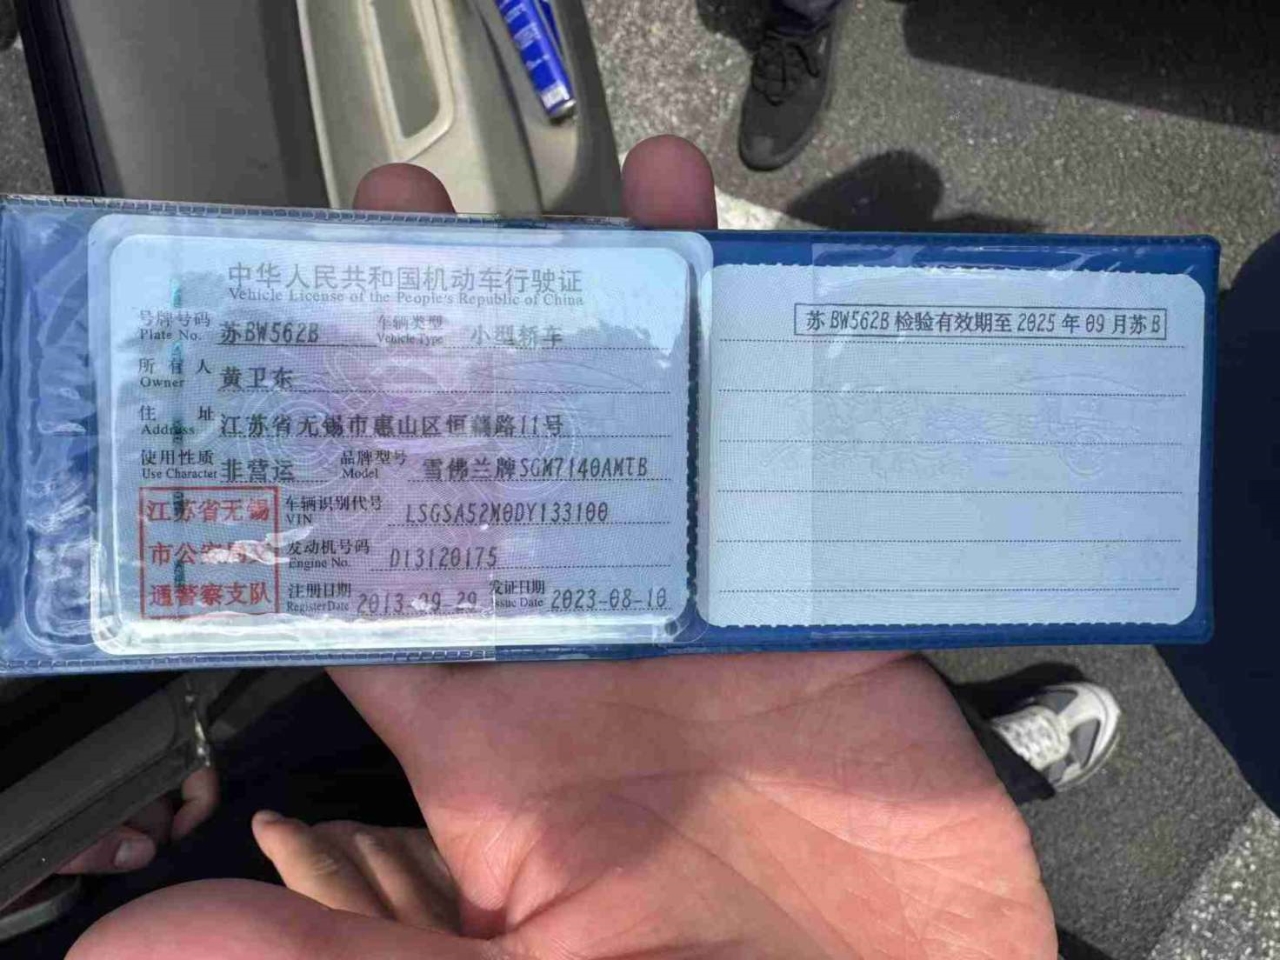 中华人民共和国机动车行驶证
Vehicle License of the People's Republic of China
号牌号码 苏BW562B 车辆类型 小型轿车
Plate No. Vehicle Type
所有人 黄卫东
Owner
住址 江苏省无锡市惠山区恒路11号
Address
使用性质 非营运 品牌型号 雪佛兰牌SGM7140AMTB
Use Character Model
江苏省无锡
市公安局交
通警察支队
车辆识别代号 LSGSA52M0DY133100
VIN
发动机号码 D13120175
Engine No.
注册日期 2013-09-29 发证日期 2023-08-10
Register Date Issue Date
苏BW562B检验有效期至2025年09月苏B